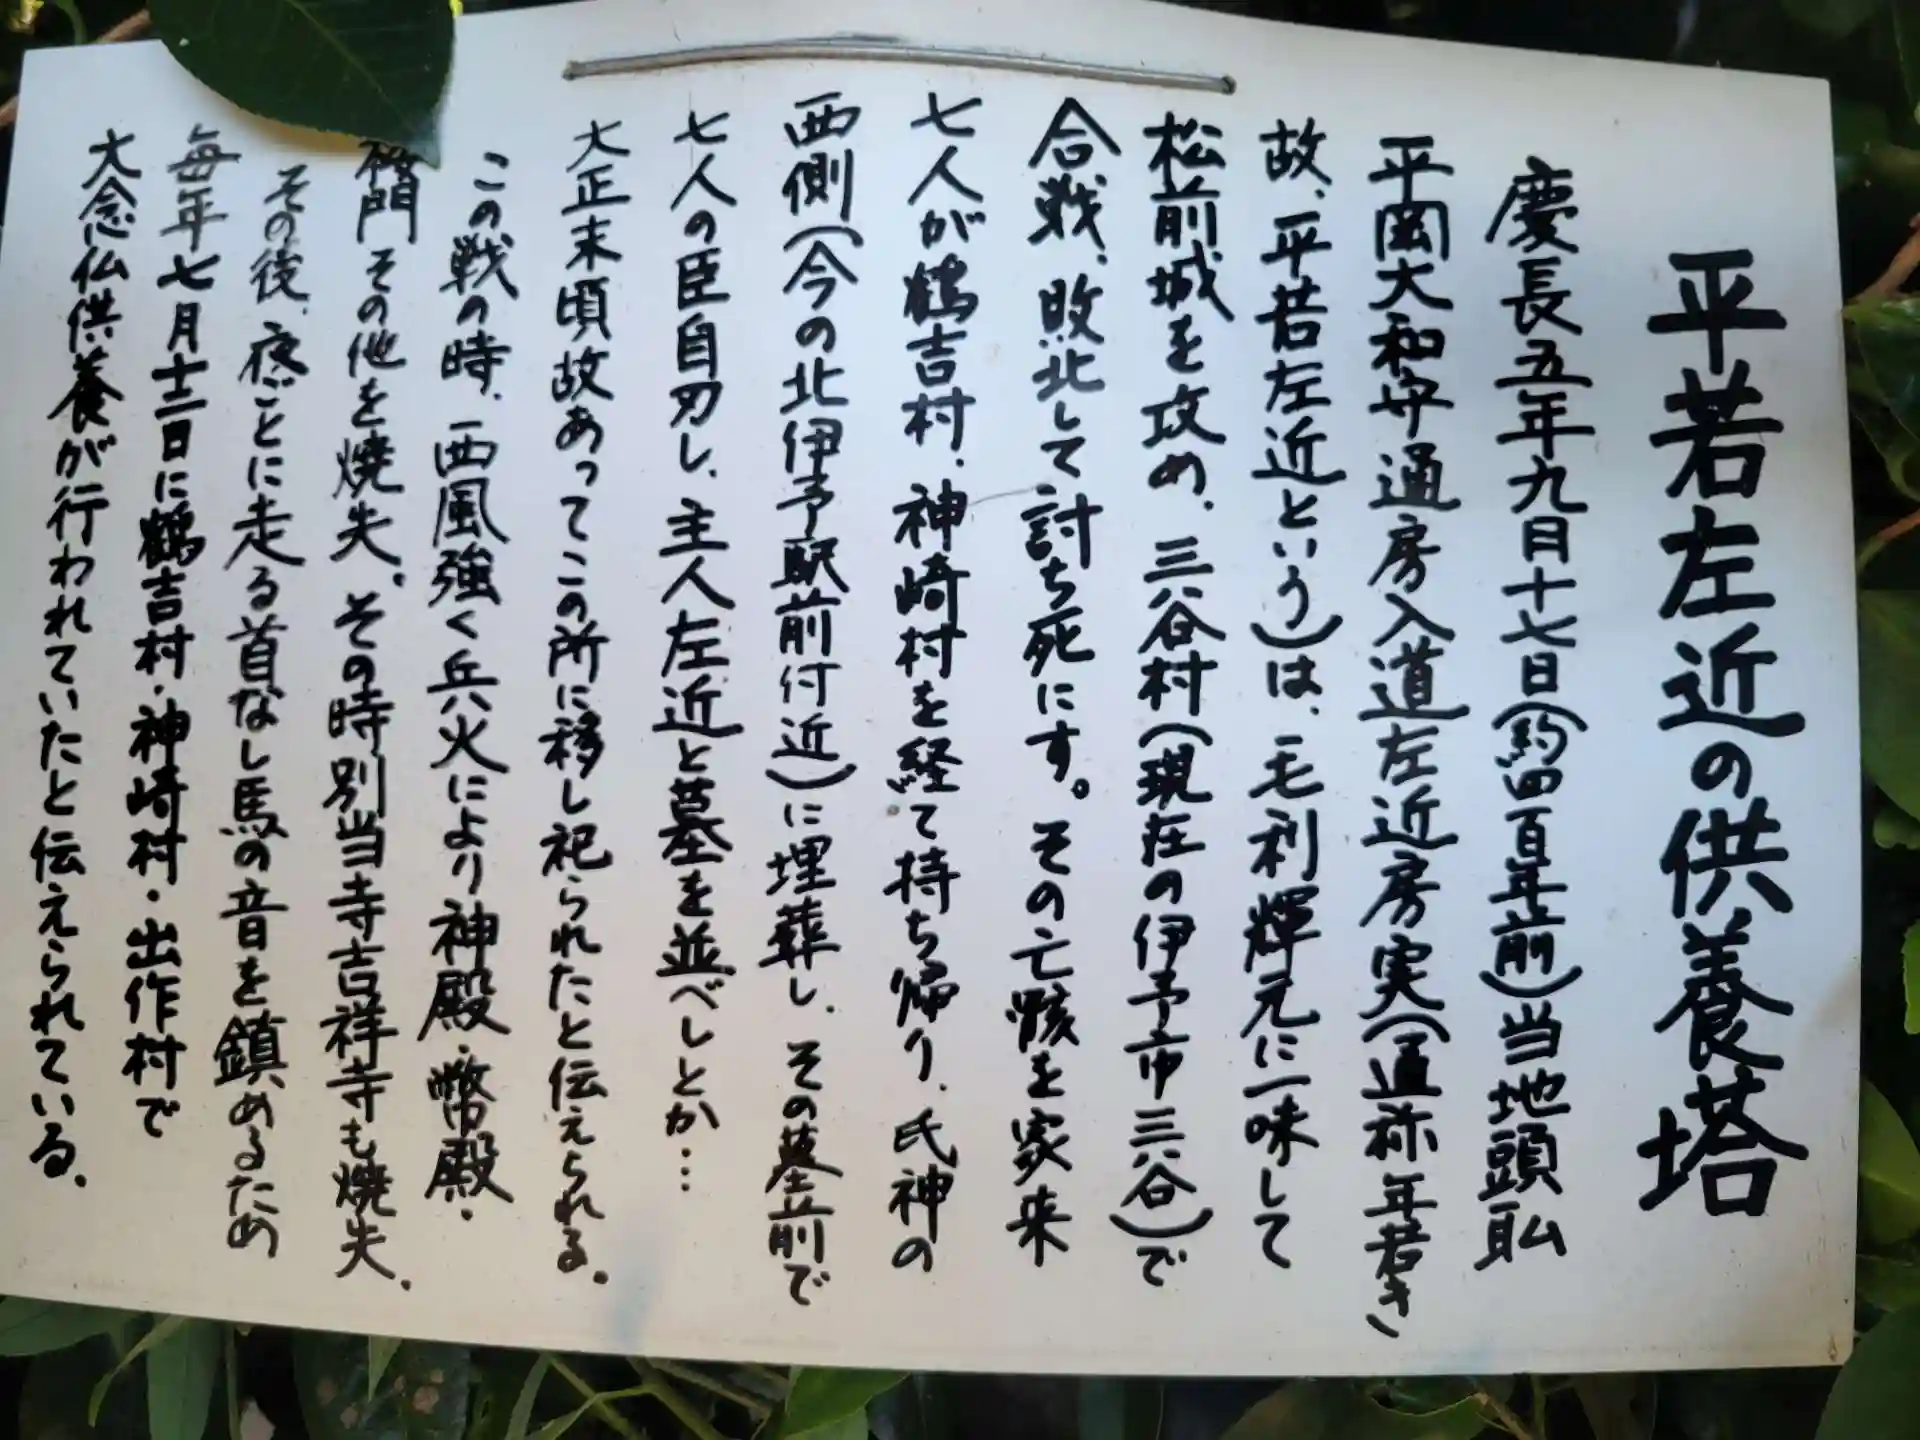 平若左近の供養塔
慶長五年九月十七日(約四百年前)当地頭
平岡大和守通房入道左近房実(通称年若き
故、平若左近という)は、毛利輝元に一味して
松前城を攻め、三谷村(現在の伊予市三谷)で
合戦、敗北して討ち死にす。その亡骸を家来
七人が鶴吉村、神崎村を経て持ち帰り、氏神の
西側(今の北伊予駅前付近)に埋葬し、その墓前で
七人の臣自刃し、主人左近と墓を並べしとか…
大正末頃故あってこの所に移し祀られたと伝えられる。
この戦の時、西風強く兵火により神殿・幣殿・
門その他を焼失。その時別当寺吉祥寺も焼失。
その後、夜ごとに走る首なし馬の音を鎮めるため
毎年七月十二日に鶴吉村・神崎村・出作村で
大念仏供養が行われていたと伝えられている。